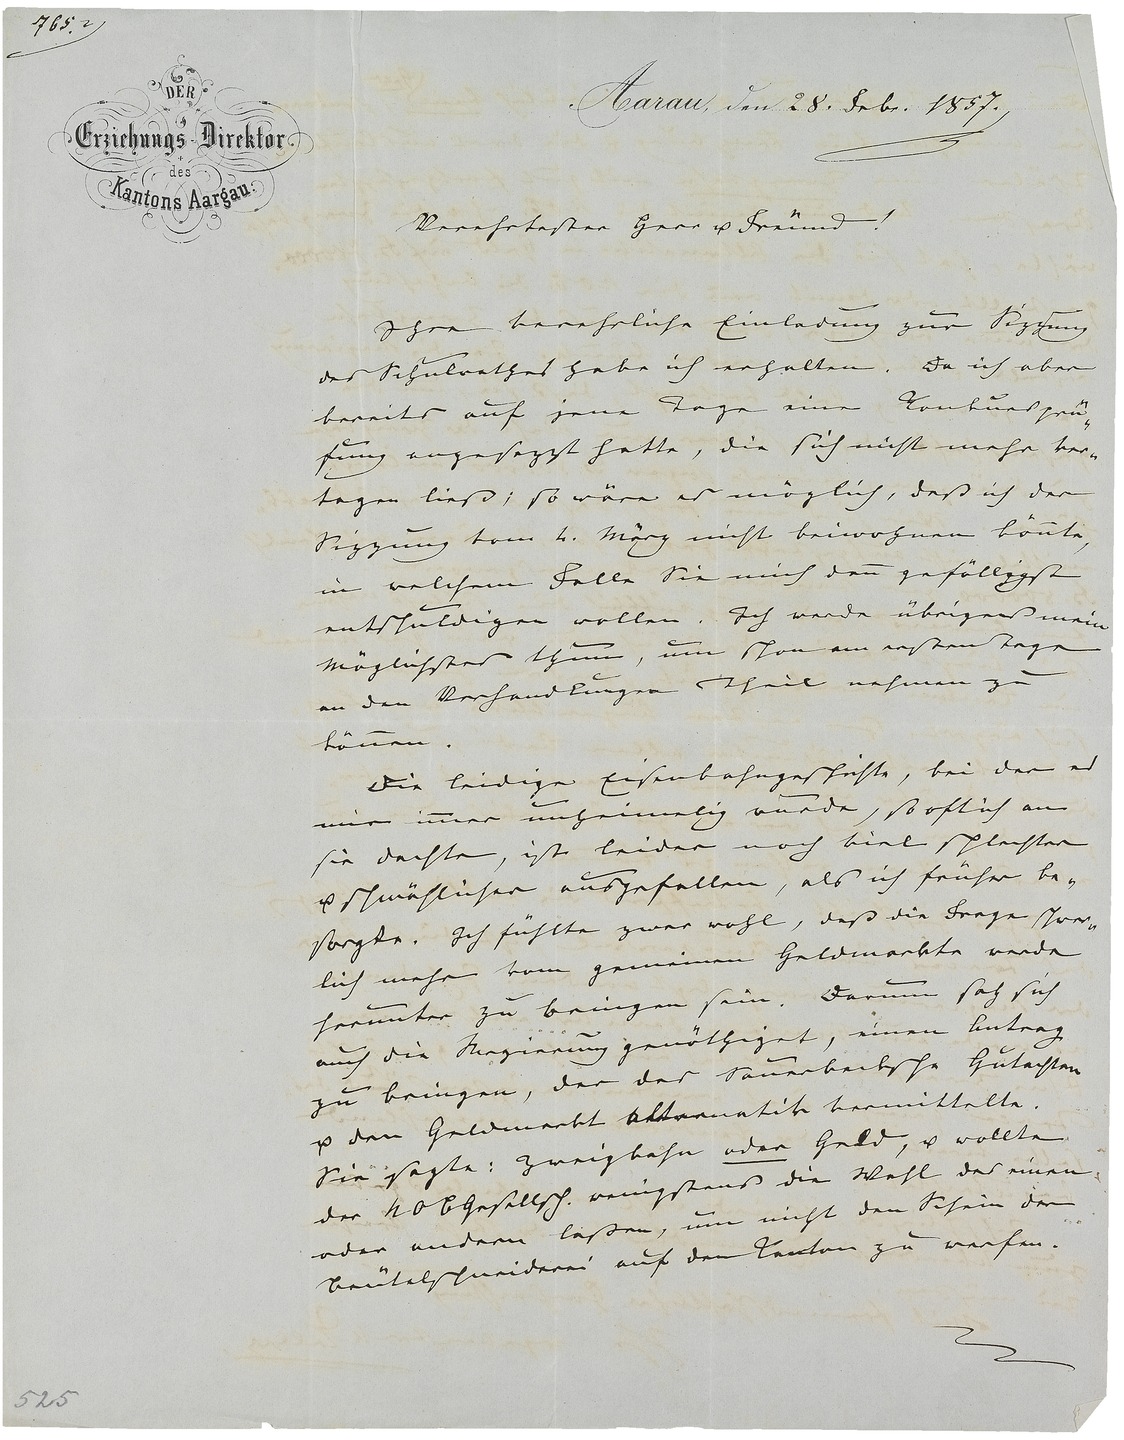 765.
DER
Erziehungs-Direktor
des
Kantons Aargau.
Aarau, den 28. Febr. 1857.
Verehrtester Herr u Freund!
Ihre verehrliche Einladung zur Sizzung
des Schulrathes habe ich erhalten. Da ich aber
bereits auf jene Tage eine Konkursprü„
fung angesezt hatte, die sich nicht mehr ver„
tagen ließ; so wäre es möglich, daß ich der
Sizzung vom 4. März nicht beiwohnen könnte,
in welchem Falle Sie mich dan̄ gefälligst
entschuldigen wollen. Ich werde übrigens mein
Möglichstes thun, um schon am ersten Tage
an den Verhandlungen Theil nehmen zu
kön̄en.
Die leidige Eisenbahngeschichte, bei der es
mir im̄er unheimelig wurde, so oft ich an
sie dachte, ist leider noch viel schlechter
u schmählicher ausgefallen, als ich früher be„
sorgte. Ich fühlte zwar wohl, daß die Frage schwer„
lich mehr vom gemeinen Geldmarkte werde
herunter zu bringen sein. Darum sah sich
auch die Regierung genöthiget, einen Antrag
zu bringen, der das Sauerbeck'sche Gutachten
u den Geldmarkt alternativ vermittelte.
Sie sagte: Zweigbahn oder Geld, u wollte
der NOBGesellsch. wenigstens die Wahl des einen
oder andern lassen, um nicht den Schein der
Beutelschneiderei auf den Kanton zu werfen.
525